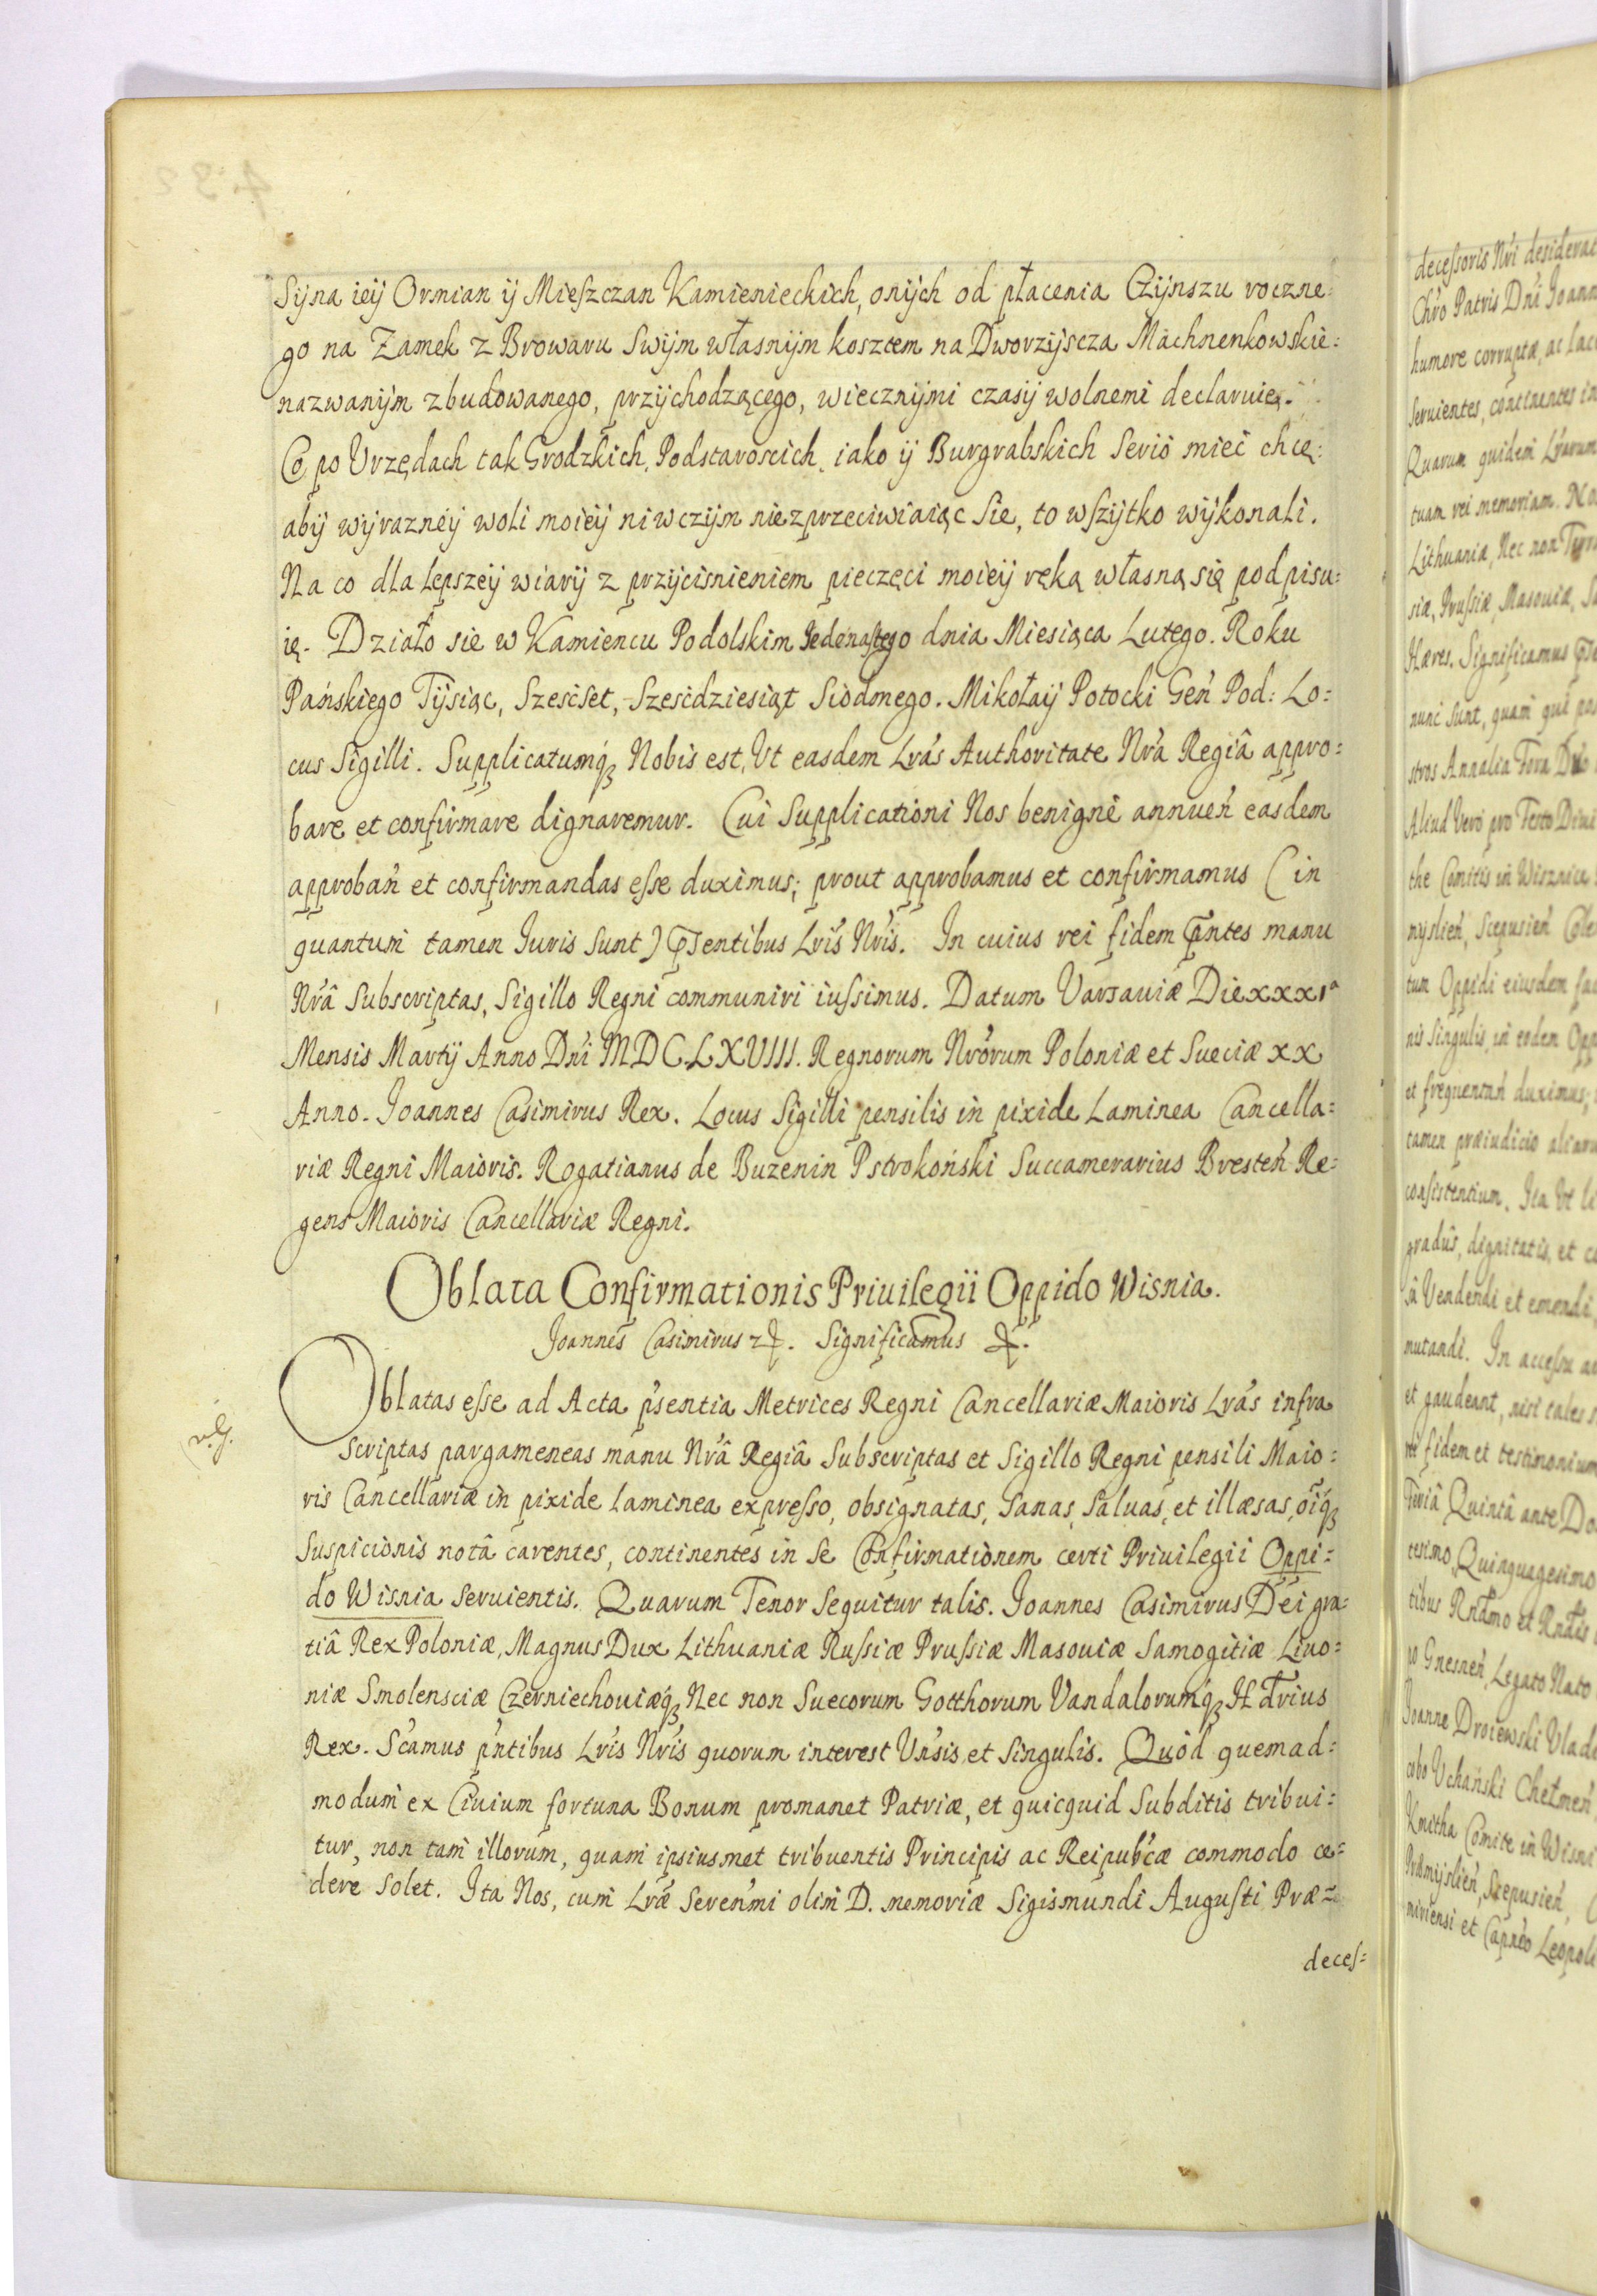 Syna iey Ormian y Mieszczan Kamienieckich, onych od płacenia Czynszu roczne=
go na Zamek z Browaru Swym własnym kosztem na Dworzyscza Machnenkowskie=
nazwanym zbudowanego, przychodzącego, wiecznymi czasy wolnemi declaruię.
Co po Vrzędach tak Grodzkich, Podstaroscich, iako y Burgrabskich Serio miec chcę:
aby wyrazney woli moiey niwczym niezprzeciwiaiąc sie, to wszytko wykonali.
Na co dla lepszey wiary z przycisnieniem pieczęci moiey ręką własną się podpisu=
ię. Działo sie w Kamiencu Podolskim Jedenastego dnia Miesiąca Lutego. Roku
Pańskiego Tysiąc, Szescset, Szescdziesiąt Siodmego. Mikołay Potocki Geń Pod: Lo=
cus Sigilli. Supplicatumq́ꝫ Nobis est, Vt easdem Lrás Authoritate Nrá Regiâ appro=
bare et confirmare dignaremur. Cui Supplicationi Nos benignè annueń easdem
approbań et confirmandas esse duximus; prout approbamus et confirmamus (in
quantum tamen Juris sunt) p̄sentibus Lrís Nrís. In cuius rei fidem p̄ntes manu
Nrâ subscriptas, Sigillo Regni communiri iussimus. Datum Varsauiæ Die xxx1ª
Mensis Martij Anno Dńi MDCLXVIII. Regnorum Nrórum Poloniæ et Sueciæ xx
Anno. Joannes Casimirus Rex. Locus Sigilli pensilis in pixide Laminea Cancella=
riæ Regni Maioris. Rogatianus de Buzenin Pstrokoński Succamerarius Bresteń Re=
gens Maioris Cancellariæ Regni.
Oblata Confirmationis Priuilegii Oppido Wisnia.
Joannes Casimirus &. Significamus &.
Oblatas esse ad Acta pśentia Metrices Regni Cancellariæ Maioris Lrás infra
scriptas pargameneas manu Nrâ Regiâ Subscriptas et Sigillo Regni pensili Maio=
ris Cancellariæ in pixide laminea expresso, obsignatas, Sanas, Saluas, et illæsas, oīq́ꝫ
Suspicionis notâ carentes, continentes in se Confirmationem certi Priuilegii Oppi=
do Wisnia seruientis. Quarum Tenor Sequitur talis. Joannes Casimirus Dei gra=
tiâ Rex Poloniæ, Magnus Dux Lithuaniæ Russiæ Prussiæ Masouiæ Samogitiæ Liuo=
niæ Smolensciæ Czerniechouiæq́ꝫ Nec non Suecorum Gotthorum Vandalorumq́ꝫ Hd̄rius
Rex. Scámus pńtibus Lrís Nrís quorum interest Vnśis et singulis. Quòd quemad=
modum ex Ciuium fortuna Bonum promanet Patriæ, et quicquid Subditis tribui=
tur, non tam illorum, quam ipsiusmet tribuentis Principis ac Reipubĉæ commodo ce=
dere solet. Ita Nos, cum Lrǽ Sereńmi olim D. memoriæ Sigismundi Augusti Præ=
deces=
decessoris Nrí
Chrō Patris Dńi
humore corruptæ, ac
seruientes, continentes in
Quarum quidem Lrárum
tuam rei memoriam.
Lithuaniæ, Nec non
siæ, Prussiæ, Masouiæ,
Hæres. Significamus
nunc sunt, quam qui
stros Annalia Fora
Aliud Vero pro Festo
the Comitis in
tum Oppidi eiusdem
nis singulis, in eodem
et frequentań duximus;
tamen præiudicio
consistentium. Ita Vt
gradûs, dignitatis, et
Vendendi et emendi
mutandi. In accessu
et gaudeant, nisi tales
rei fidem et testimonium
Feriâ Quintâ ante
Quinquagesimo
Gnesneń, Legato Nato
Joanne Droiewski
Vchański Chełmeń
Kmitha Comite in